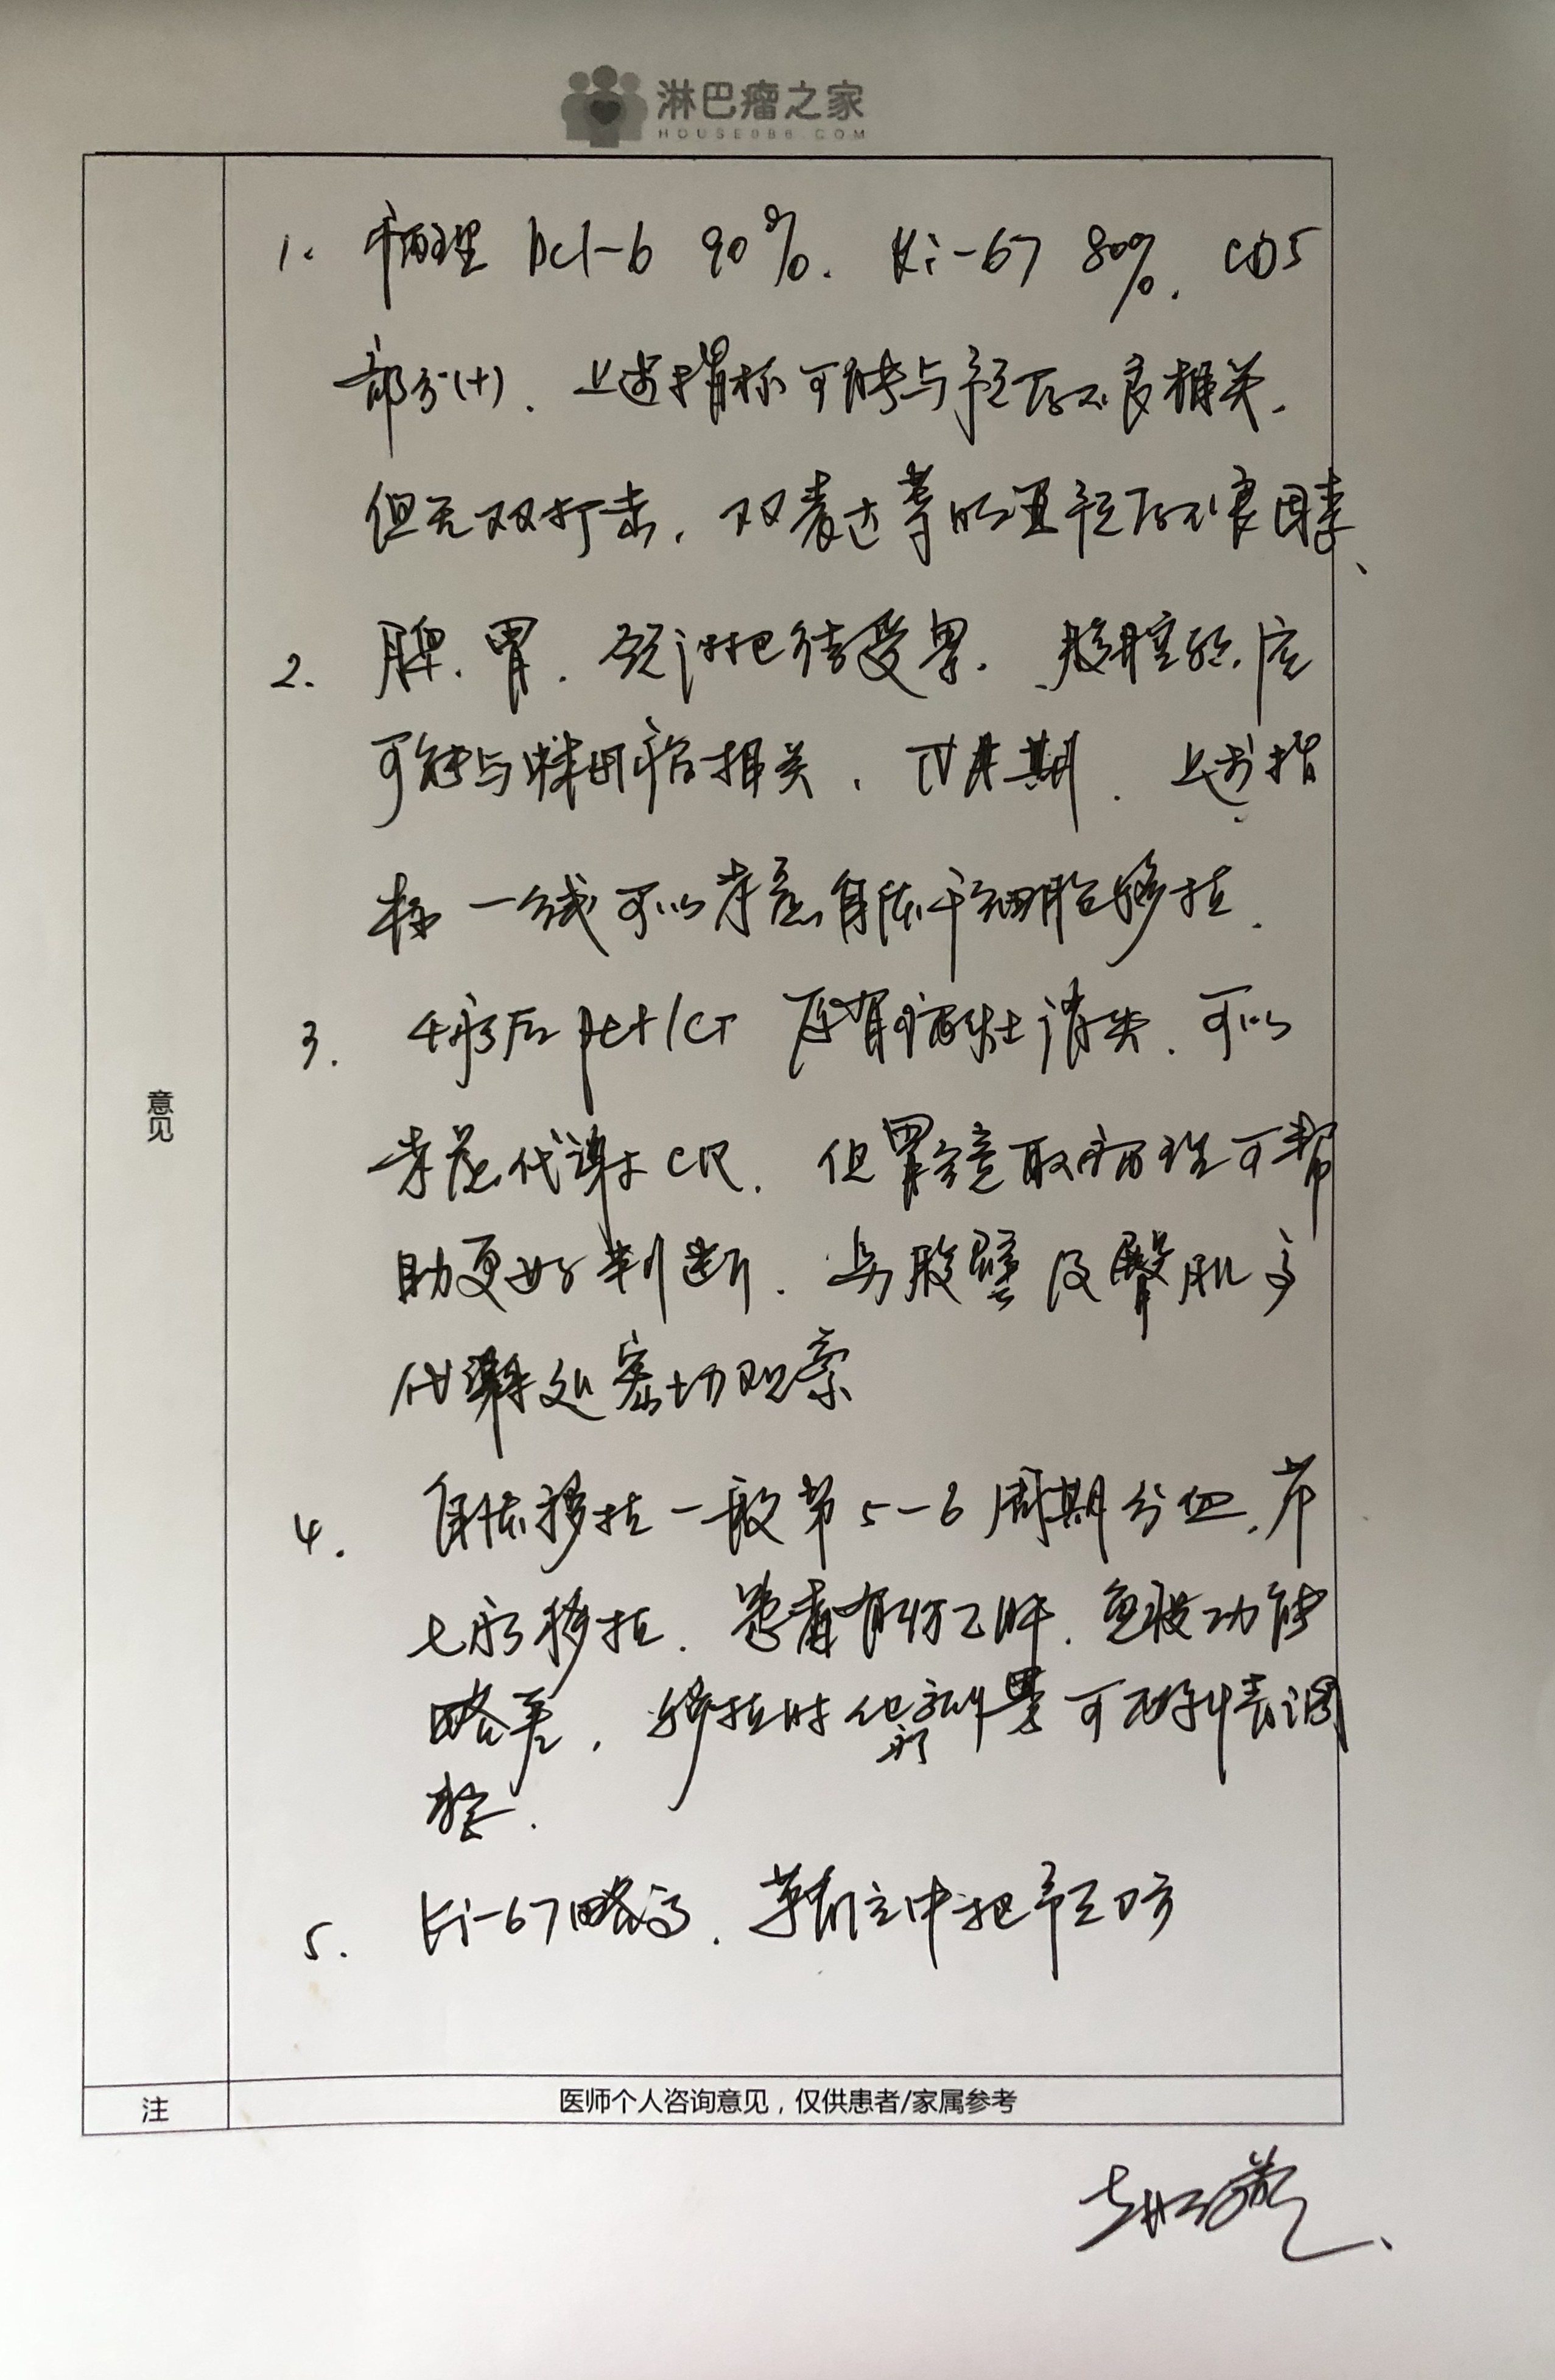 淋巴瘤之家
HOUSE086.COM
1. 病理 bcl-6 90%. Ki-67 80%. CD5
部分(+). 上述指标可能与预后不良相关.
但无双打击, 双表达等明显预后不良因素、
2. 脾. 胃. 颈淋巴结受累. 腹腔积液
可能与淋巴瘤相关, IV期. 上述指
标 一线可以考虑自体干细胞移植.
3. 4疗后 pet/CT 原有病灶消失. 可以
考虑代谢 CR. 但胃镜取病理可帮
助更好判断. 另腹壁及臀肌高
代谢处密切观察
4. 自体移植一般第5-6周期分
移植. 患者有乙肝. 免疫功能
略差, 移植时 可酌情调
整.
5. Ki-67略高, 中枢预防
意见
注
医师个人咨询意见，仅供患者/家属参考